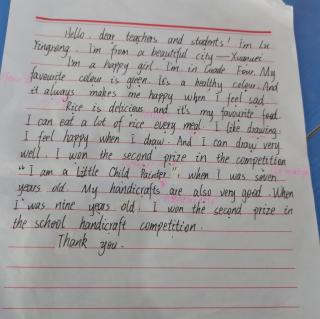 Hello, dear teachers and students! I'm Lu
Yingrong. I'm from a beautiful city — Xuanwei.
I'm a happy girl. I'm in Grade Four. My
favourite colour is green. It's a healthy colour. And
it always makes me happy when I feel sad.
Rice is delicious and it's my favourite food.
I can eat a lot of rice every meal. I like drawing.
I feel happy when I draw. And I can draw very
well. I won the second prize in the competition
"I am a Little Child Painter", when I was seven
years old. My handicrafts are also very good. When
I was nine years old, I won the second prize in
the school handicraft competition.
Thank you.